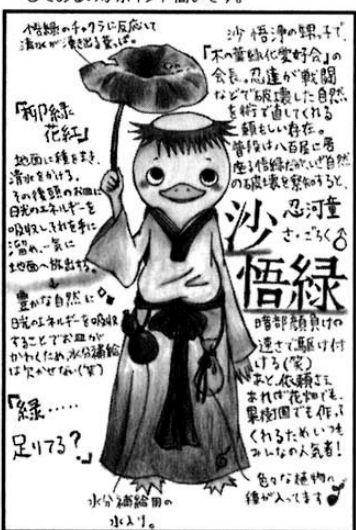 悟緑のチャクラに反応して
清水が湧き出る葉っぱ。
『柳緑
花紅』
地面に種をまき、
清水をかける。
その後頭のお皿に
日光のエネルギーを
吸収しそれを手に
溜め、一気に
地面へ放出する。
豊かな自然に
日光のエネルギーを吸収
することでお皿が
かわくため、水分補給
は欠かせない(笑)
『緑……
足りてる?』
水分補給用の
水入り。
沙悟浄の甥っ子で、
『木の葉緑化愛好会』の
会長。忍達が戦闘
などで破壊した自然
を術で直してくれる
頼もしい存在。
普段は八百屋に居
座る悟緑だがいざ自然
の破壊を察知すると、
忍河童
沙悟緑
さ・ごろく♂
暗部顔負けの
速さで駆け付
ける(笑)
あと、依頼さえ
あれば花畑でも、
果樹園でも作って
くれるためいつも
みんなの人気者!
色々な植物の
種が入ってます